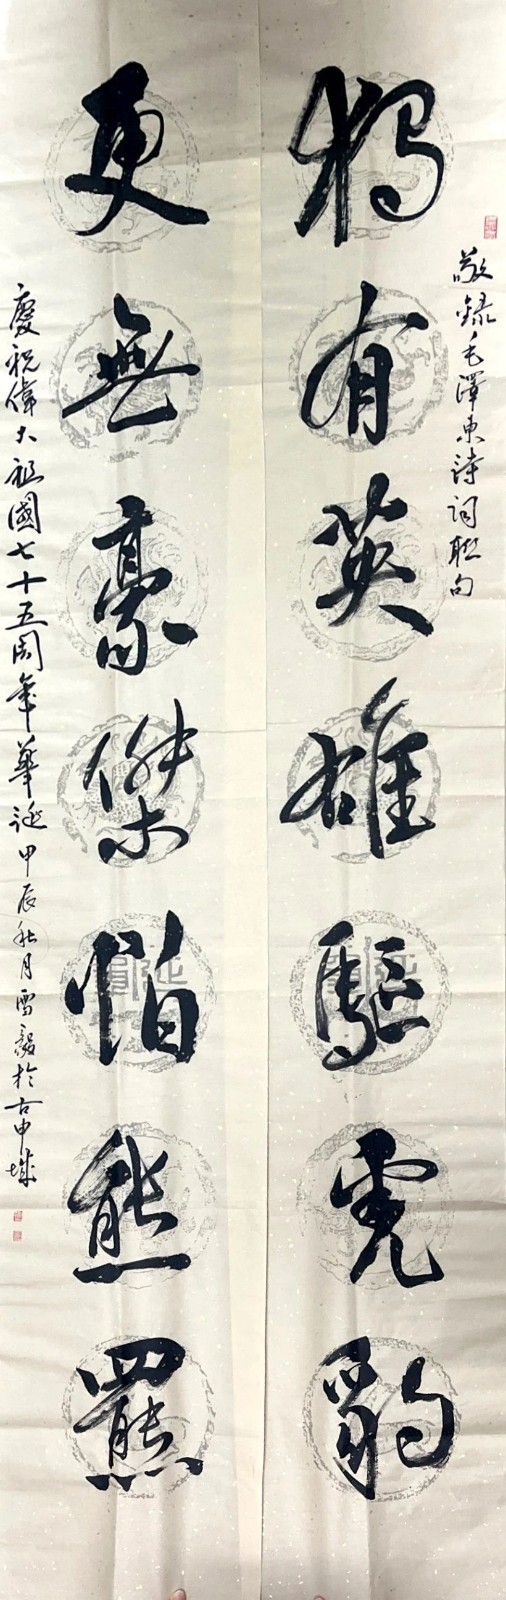 敬錄毛澤東詩詞聯句
獨有英雄驅虎豹
更無豪傑怕熊羆
慶祝偉大祖國七十五周年華誕甲辰秋月雪毅於古申城